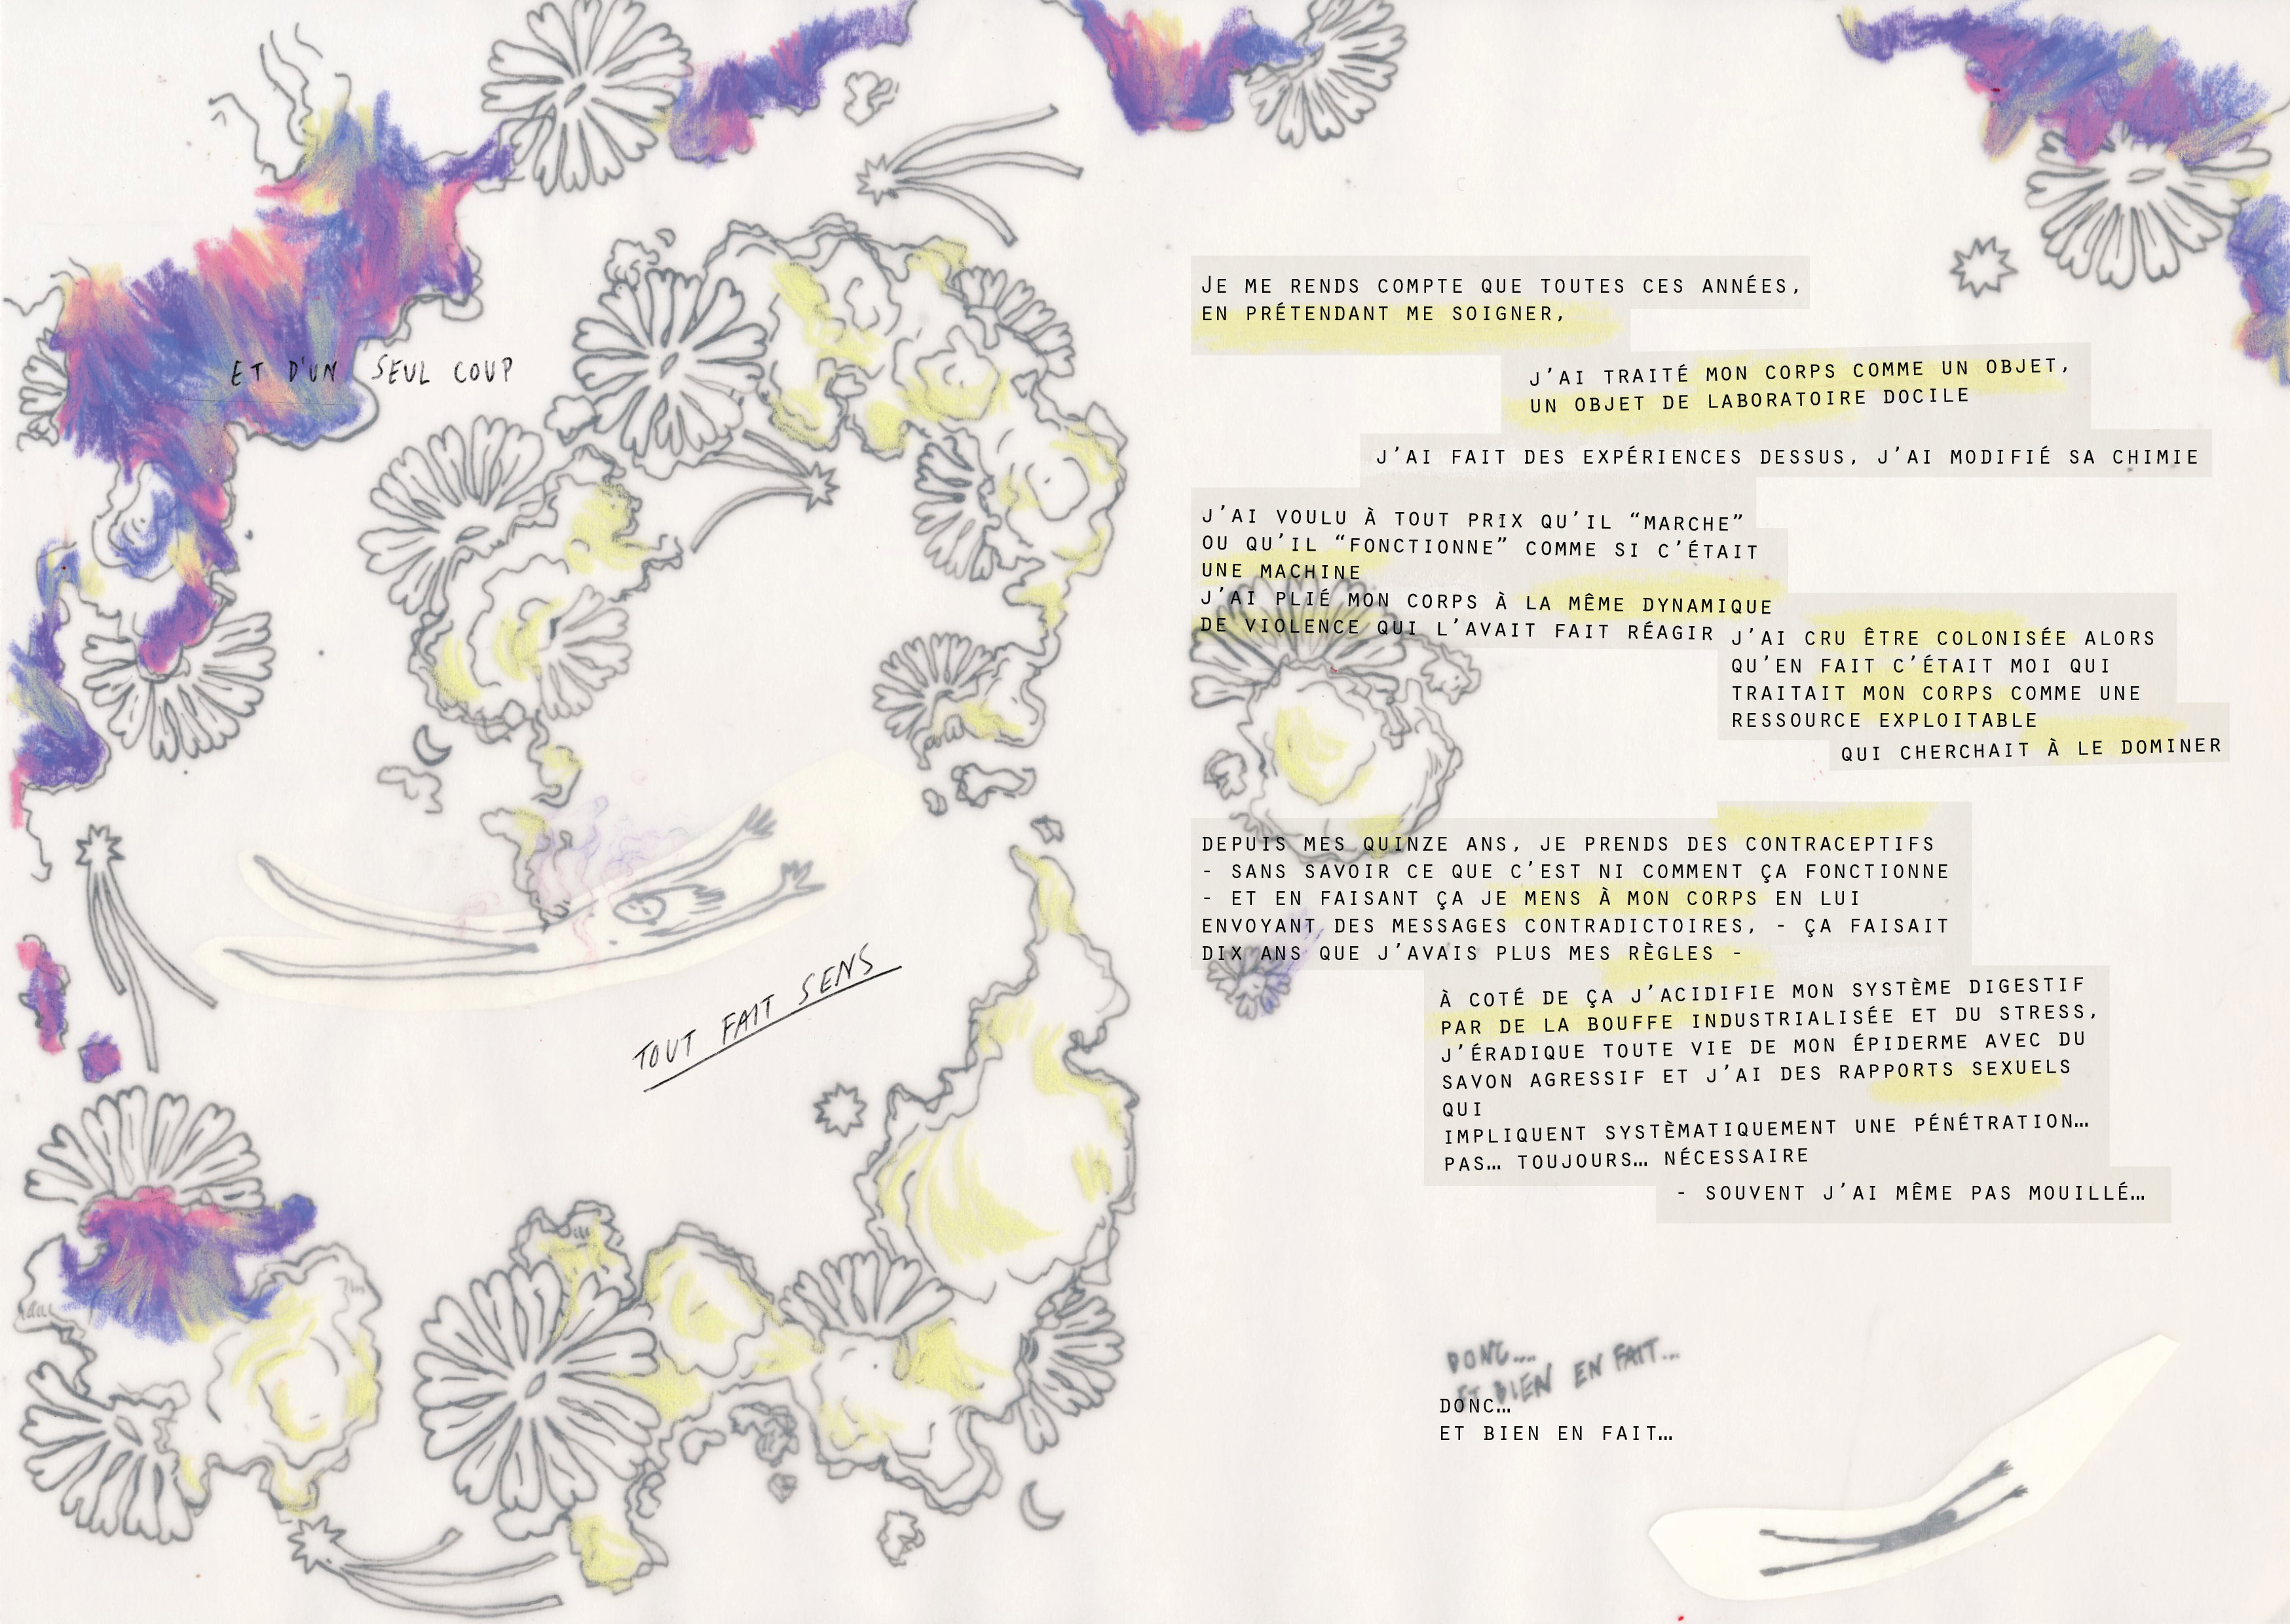 ET D'UN SEUL COUP
TOUT FAIT SENS
JE ME RENDS COMPTE QUE TOUTES CES ANNÉES,
EN PRÉTENDANT ME SOIGNER,
J'AI TRAITÉ MON CORPS COMME UN OBJET,
UN OBJET DE LABORATOIRE DOCILE
J'AI FAIT DES EXPÉRIENCES DESSUS, J'AI MODIFIÉ SA CHIMIE
J'AI VOULU À TOUT PRIX QU'IL “MARCHE”
OU QU'IL “FONCTIONNE” COMME SI C'ÉTAIT
UNE MACHINE
J'AI PLIÉ MON CORPS À LA MÊME DYNAMIQUE
DE VIOLENCE QUI L'AVAIT FAIT RÉAGIR
J'AI CRU ÊTRE COLONISÉE ALORS
QU'EN FAIT C'ÉTAIT MOI QUI
TRAITAIT MON CORPS COMME UNE
RESSOURCE EXPLOITABLE
QUI CHERCHAIT À LE DOMINER
DEPUIS MES QUINZE ANS, JE PRENDS DES CONTRACEPTIFS
- SANS SAVOIR CE QUE C'EST NI COMMENT ÇA FONCTIONNE
- ET EN FAISANT ÇA JE MENS À MON CORPS EN LUI
ENVOYANT DES MESSAGES CONTRADICTOIRES, - ÇA FAISAIT
DIX ANS QUE J'AVAIS PLUS MES RÈGLES -
À COTÉ DE ÇA J'ACIDIFIE MON SYSTÈME DIGESTIF
PAR DE LA BOUFFE INDUSTRIALISÉE ET DU STRESS,
J'ÉRADIQUE TOUTE VIE DE MON ÉPIDERME AVEC DU
SAVON AGRESSIF ET J'AI DES RAPPORTS SEXUELS
QUI
IMPLIQUENT SYSTÈMATIQUEMENT UNE PÉNÉTRATION…
PAS… TOUJOURS… NÉCESSAIRE
- SOUVENT J'AI MÊME PAS MOUILLÉ…
DONC....
ET BIEN EN FAIT...
DONC…
ET BIEN EN FAIT…